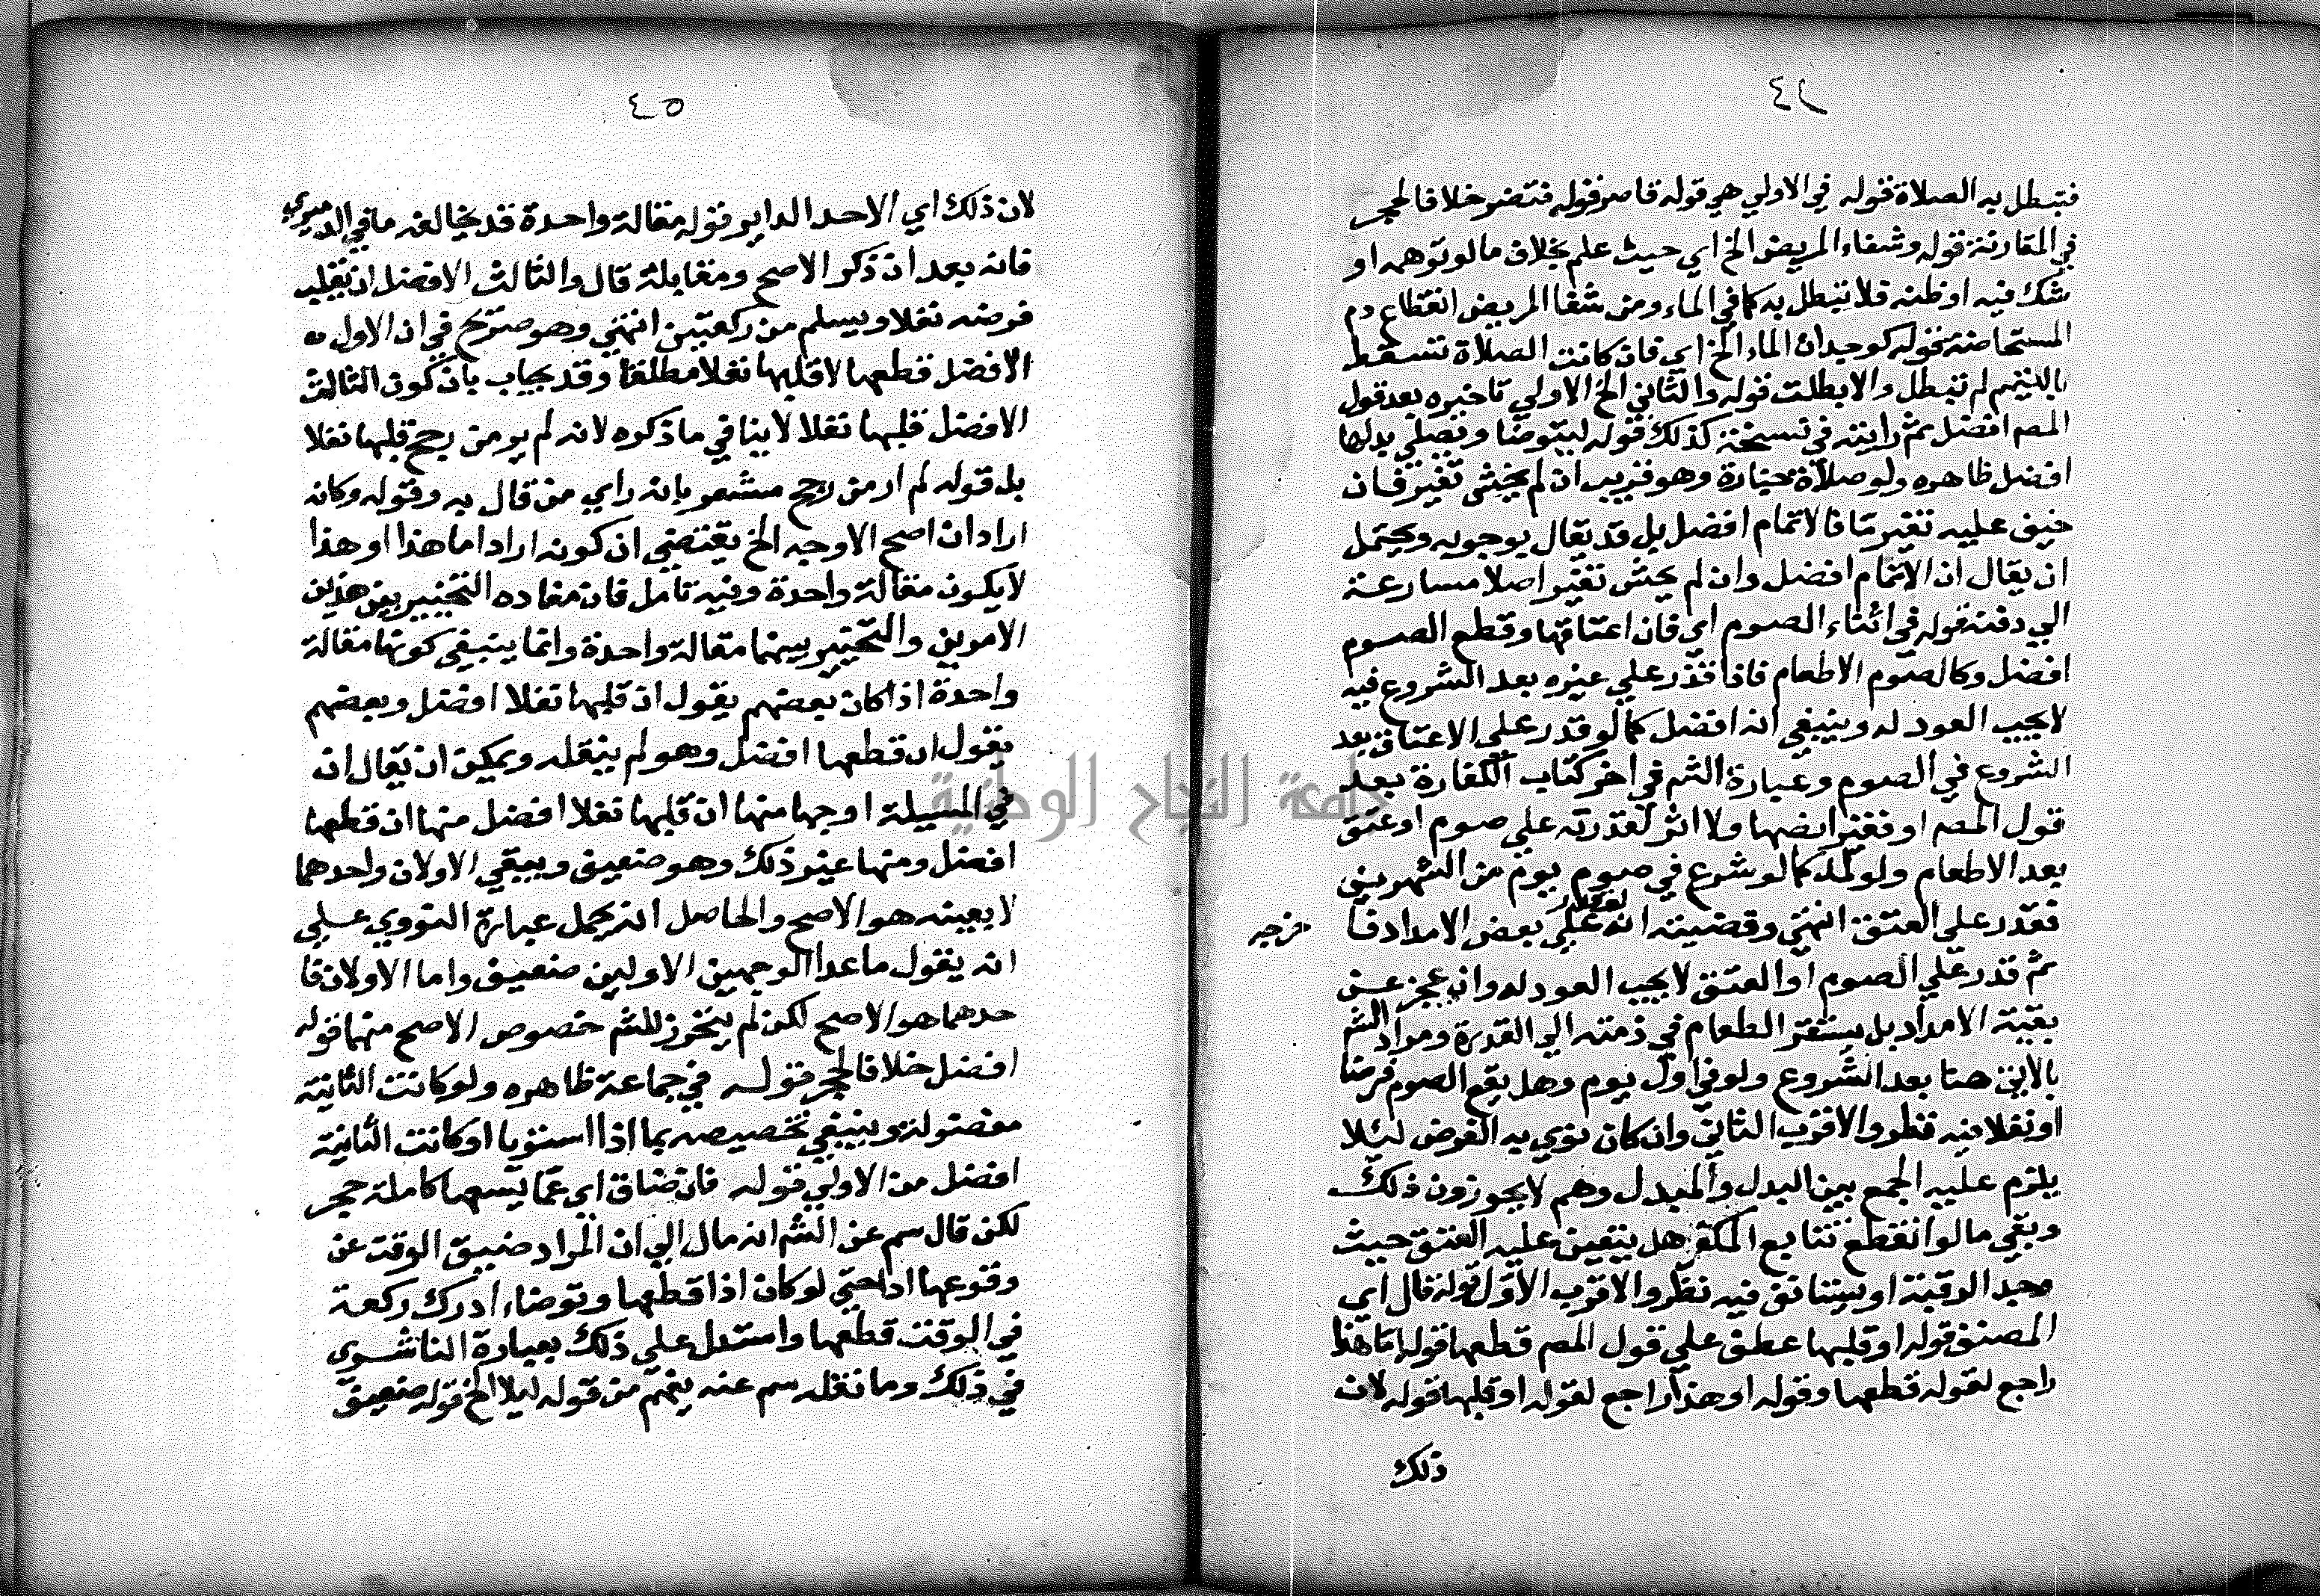 ٤٢
فتبطل به الصلاة قوله في الاولي هي قوله قاصر قوله فتضر خلافا لحجر
في المقارنة قوله وشفاء المريض الخ اي حيث علم بخلاف ما لو توهمه او
شك فيه او ظنه فلا تبطل به كما في الماء ومن شفا المريض انقطاع دم
المستحاضة قوله كوجدان الماء الخ اي فان كانت الصلاة تسقط
بالتيمم لم تبطل والا بطلت قوله والثاني الخ الاولي تاخيره بعد قول
المص افضل ثم رايته في نسخة كذلك قوله ليتوضا ويصلي بدلها
افضل ظاهره ولو صلاة جنازة وهو قريب ان لم يخش تغير فان
خيف عليه تغير ما فالاتمام افضل بل قد يقال بوجوبه ويحتمل
ان يقال ان الاتمام افضل وان لم يخش تغير اصلا مسارعة
الي دفنه قوله في اثناء الصوم اي فان اعتاقها وقطع الصوم
افضل وكالصوم الاطعام فاذا قدر علي غيره بعد الشروع فيه
لا يجب العود له وينبغي انه افضل كما لو قدر علي الاعتاق بعد
الشروع في الصوم وعبارة الشم في اخر كتاب الكفارة بعد
قول المص او فقيرا يضها ولا اثر لقدرته علي صوم او عتق
بعد الاطعام ولو لمد كما لو شرع في صوم يوم من الشهرين
فقدر علي العتق انتهي وقضيته انه علي بعض الامداد فا
ثم قدر علي الصوم او العتق لا يجب العود له وان عجز عن
بقية الامداد بل يستقر الطعام في ذمته الي القدرة ومراد الشم
بالابن هنا بعد الشروع ولو في اول يوم وهل يقع الصوم فرضا
او نفلا فيه نظر والاقرب الثاني وان كان نوي به الفرض ليلا
يلزم عليه الجمع بين البدل والمبدل وهم لا يجوزون ذلك
وبقي ما لو انقطع تتابع المكفر هل يتعين عليه العتق حيث
وجد الرقبة او يستانف فيه نظر والاقرب الاول قوله قال اي
المصنف قوله او قلبها عطف علي قول المص قطعها قوله اما هذا
راجع لقوله قطعها وقوله او هذا راجع لقوله او قلبها قوله لان
ذلك
٤٥
لان ذلك اي الاحد الداير قوله مقالة واحدة قد يخالفه ما في الدميري
فانه بعد ان ذكر الاصح ومقابله قال والثالث الافضل ان يقلب
فرضه نفلا ويسلم من ركعتين انتهي وهو صريح في ان الاول
الافضل قطعها لا قلبها نفلا مطلقا وقد يجاب بان كون الثالث
الافضل قلبها نفلا لا ينافي ما ذكره لانه لم ير من رجح قلبها نفلا
بل قوله لم ار من رجح مشعر بانه راي من قال به وقوله وكانه
اراد ان اصح الاوجه الخ يقتضي ان كونه اراد اما هذا او هذا
لا يكون مقالة واحدة وفيه تامل فان مفاده التخيير بين هذين
الامرين والتخيير بينهما مقالة واحدة وانما ينبغي كونها مقالة
واحدة اذا كان بعضهم يقول ان قلبها نفلا افضل وبعضهم
يقول ان قطعها افضل وهو لم ينقله ويمكن ان يقال ان
في المسيلة اوجها منها ان قلبها نفلا افضل منها ان قطعها
افضل ومنها غير ذلك وهو ضعيف ويبقي الاولان واحدهما
لا بعينه هو الاصح والحاصل انه يحمل عبارة النووي علي
انه يقول ما عدا الوجهين الاولين ضعيف واما الاولان فا
حدهما هو الاصح لكن لم يتحرر للشم خصوص الاصح منهما قوله
افضل خلافا لحجر قوله في جماعة ظاهره ولو كانت الثانية
مفضولة وينبغي تخصيصه بما اذا استويا او كانت الثانية
افضل من الاولي قوله فان ضاق اي عما يسعها كاملة حجر
لكن قال سم عن الشم انه مال الي ان المراد ضيق الوقت عن
وقوعها اداحتي لو كان اذا قطعها وتوضاء ادرك ركعة
في الوقت قطعها واستدل علي ذلك بعبارة الناشري
في ذلك وما نقله سم عنه يفهم من قوله ليلا الخ قوله ضعيف
جامعة النجاح الوطنية